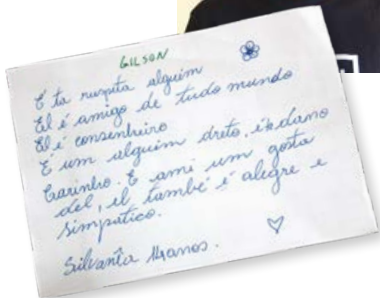 GILSON
E ta ruspita alguém
El é amigo de tudo mundo
El é consenheiro
E um alguém dreto, é dano
Carinho. E ami um gosta
del, el també é alegre e
simpatico.
Silvanía